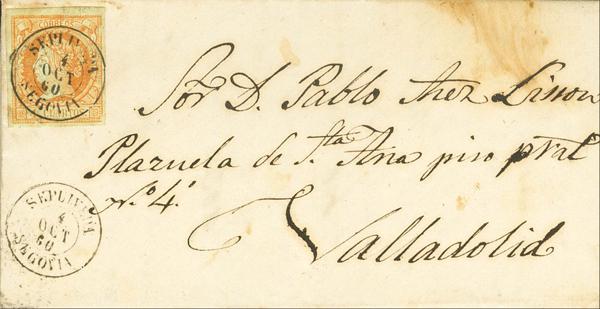 CORREOS
SEPULVEDA
4
OCT
60
SEGOVIA
Sor D. Pablo
Plazuela de Sta. Ana piso pral
N.º 4.
Valladolid
SEPULVEDA
4
OCT
60
SEGOVIA